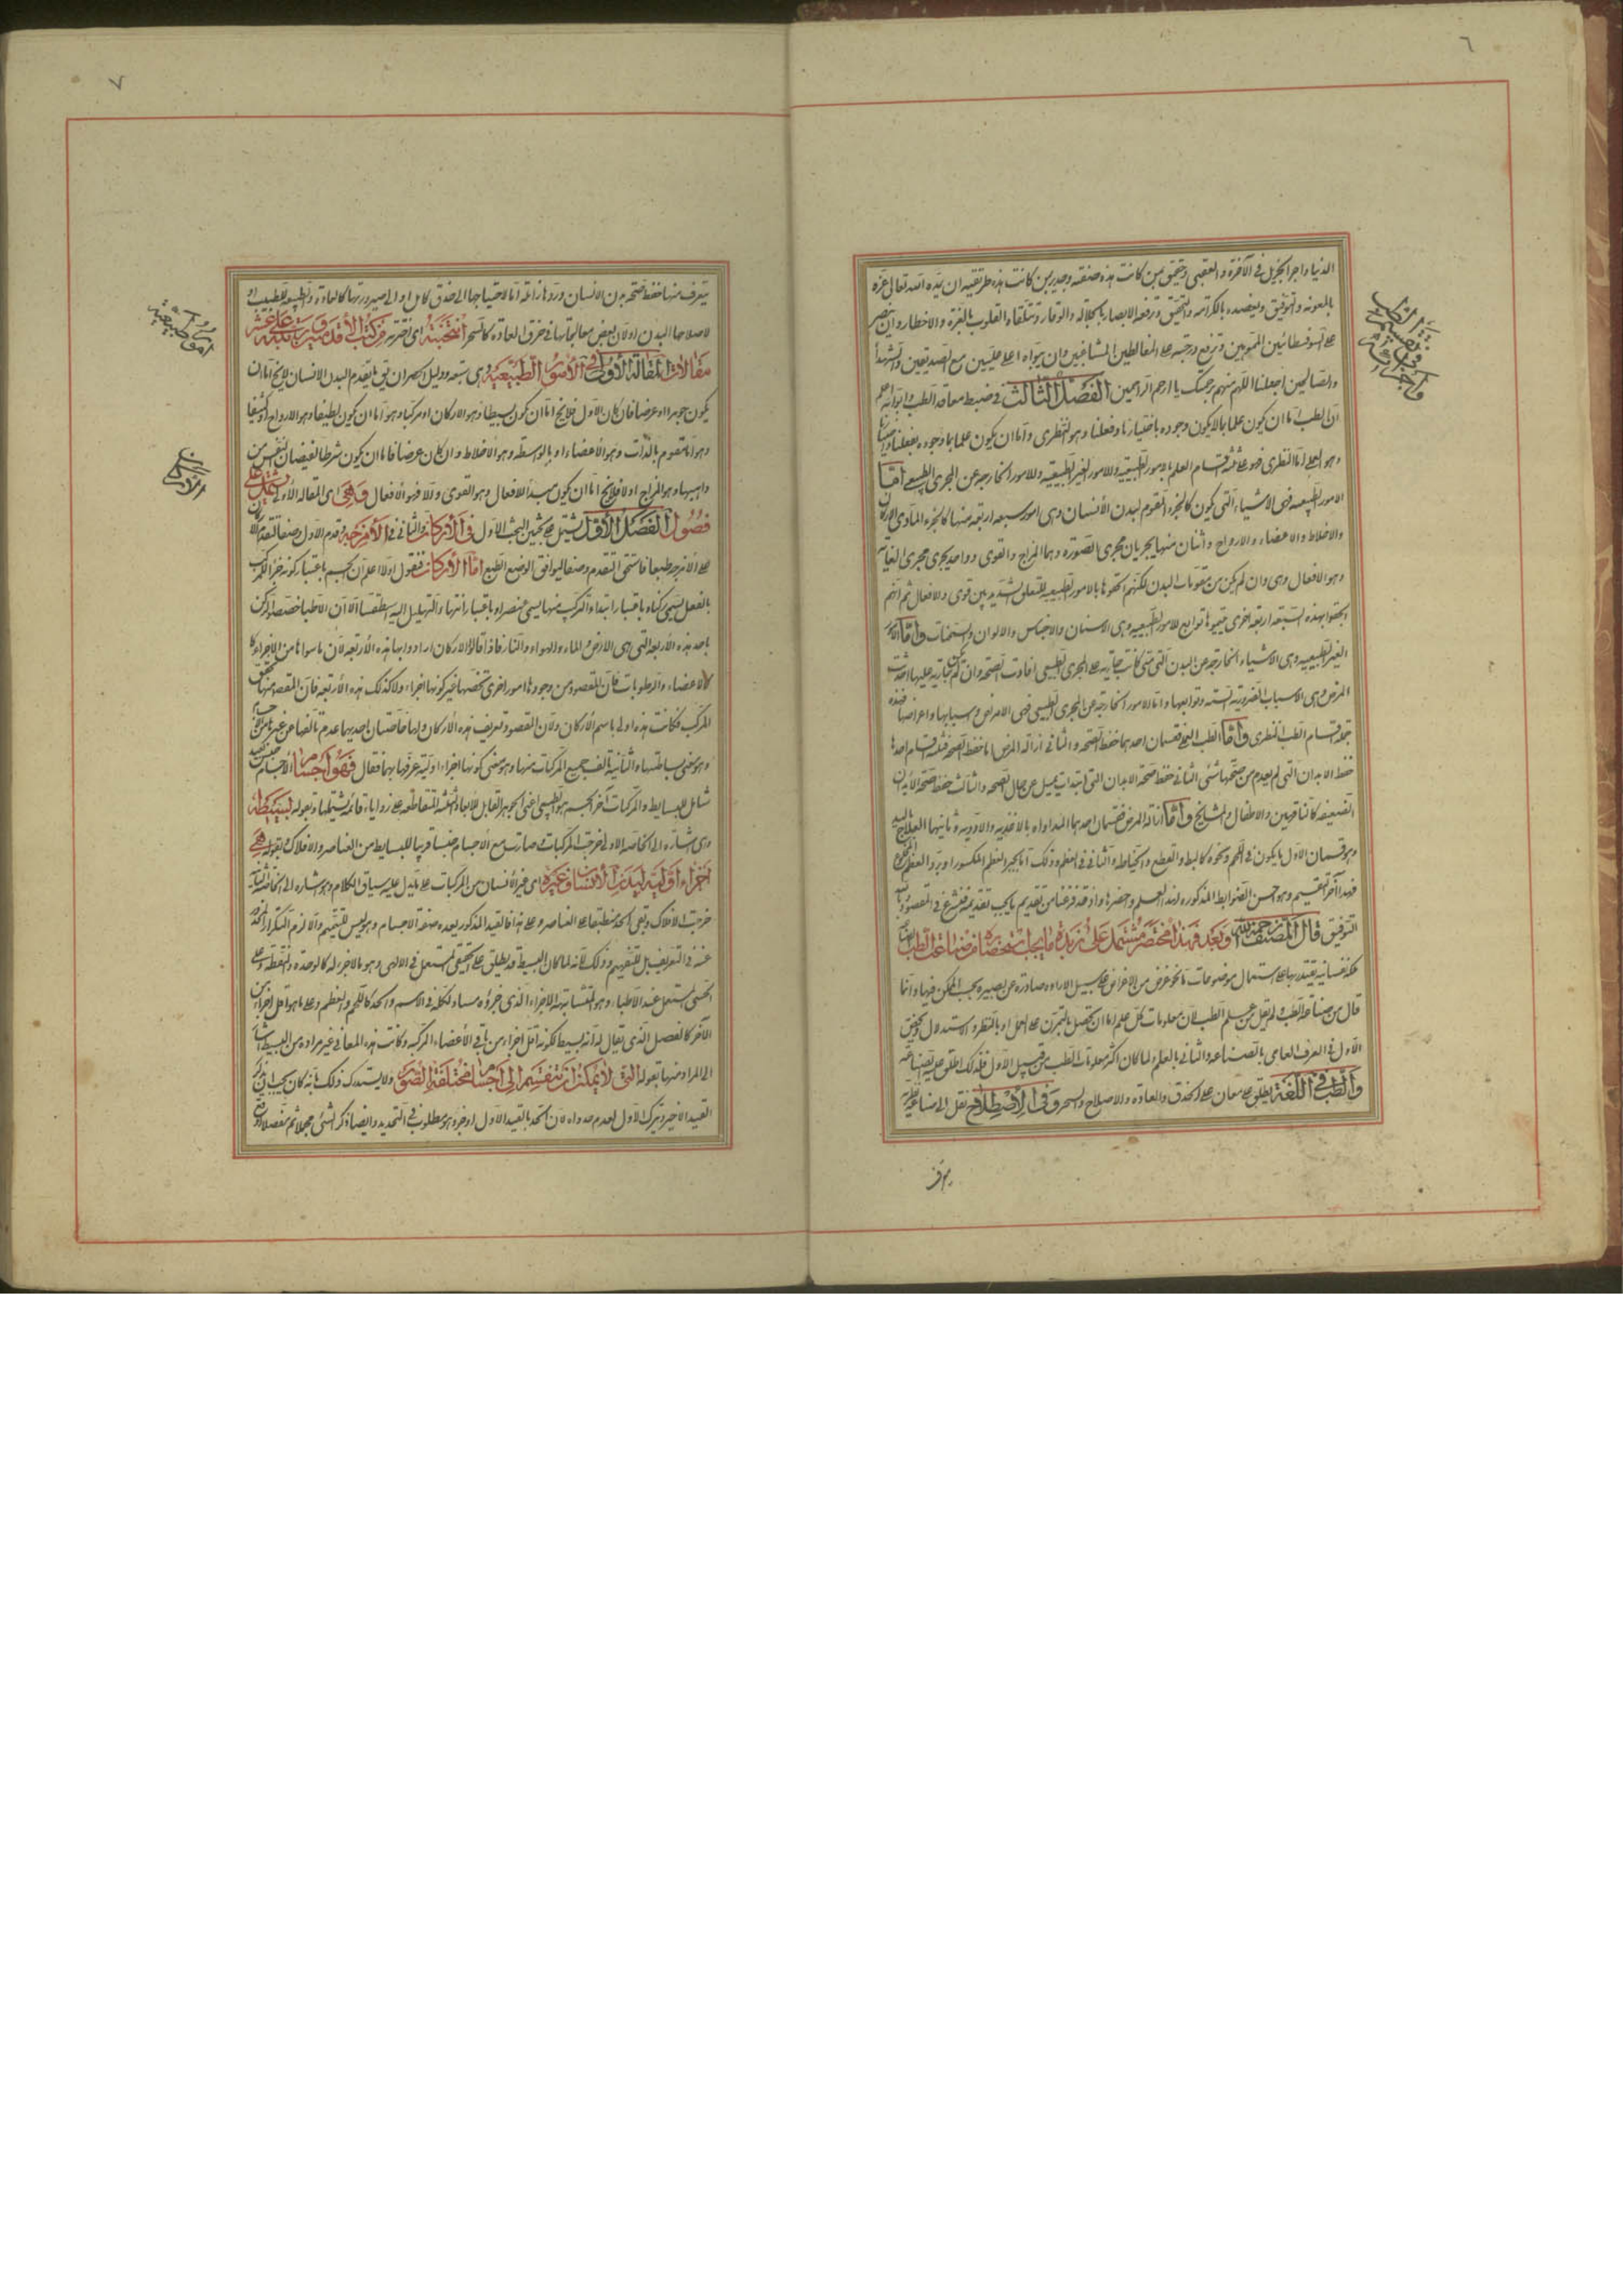 ٦
الدنيا واجرا لجزيل فى الآخرة والعقبى وحقيق بمن كانت هذه صنفته وجدير بمن كانت هذه طريقته ان يؤيده الله تعالى عزه
بالمعونه والتوفيق ويعضده بالكرامه والتحقيق وترفعه الابصار بالجلاله والوقار وتتلقاه القلوب بالعزة والاخطار وان ينتصر
على السوفسطائين المموهين وترفع درجته على المغالطين المشاغبين وان يبوأه اعلى عليين مع الصديقين والشهدآ
والصالحين اجعلنا اللهم منهم برحمتك يا ارحم الراحمين الفصل الثالث فى ضبط معاقد الطب وابوابه اعلم
ان الطب اما ان يكون علما بما لا يكون وجوده باختيارنا وفعلنا وهو النظرى واما ان يكون علما بما وجوده بفعلنا
وهو العملى اما النظرى فهو على ثلثه اقسام العلم بالامور الطبيعيه وللامور الغير الطبيعيه وللامور الخارجه عن المجرى الطبيعى اما
الامور الطبيعيه فهى الاشياء التى تكون كالجزء المقوم لبدن الانسان وهى امور سبعه اربعه منها كالجزء المادى الاركان
والاخلاط والاعضاء والارواح واثنان منها يجريان مجرى الصوره وهما المزاج والقوى وواحد يجرى مجرى الغايه
وهو الافعال وهى وان لم يكن من مقومات البدن لكنهم الحقوها بالامور الطبيعيه للتعلق الشديد بين القوى والافعال ثم انهم
الحقوا بهذه السبعه اربعه اخرى سموها توابع للامور الطبيعيه وهى الاسنان والاجناس والالوان والسحنات واما الامور
الغير الطبيعيه وهى الاشياء الخارجه عن البدن التى متى كانت جاريه على المجرى الطبيعى افادت الصحه وان لم تكن جاريه عليها احدثت
المرض وهى الاسباب الضروريه السته وتوابعها واما الامور الخارجه عن المجرى الطبيعى فهى الامراض واسبابها واعراضها فهذه
جمله اقسام الطب النظرى واما الطب العملى فقسمان احدهما حفظ الصحه والثانى ازاله المرض اما حفظ الصحه فثلثه اقسام احدها
حفظ الابدان التى لم يعدم من صحتها شئى الثانى حفظ صحة الابدان التى ابتدات يميل عن حال الصحه والثالث حفظ صحة الابدان
الضعيفه كالناقهين والاطفال والمشايخ واما ازاله المرض فقسمان احدهما المداواه بالاغذيه والادويه وثانيهما العلاج باليد
وهو قسمان الاول ما يكون فى اللحم ونحوه كالبط والقطع والخياطه والثانى فى العظم وذلك اما بجبر العظم المكسور او برد العظم المخلوع
فهذا آخر التقسيم وهو احسن الضوابط المذكوره لهذا العلم واحصرها واذ قد فرغنا من تقديم ما يجب تقديمه فلنشرع فى المقصود وبالله
التوفيق قال المصنف رحمه الله وبعد فهذا مختصر مشتمل على زبدة ما يجب استحضاره من صناعة الطب
ملكه نفسانيه يقتدر بها على استعمال موضوعات ما نحو غرض من الاغراض على سبيل الاراده صادره عن بصيره بحسب الممكن فيها وانما
قال من صناعة الطب ولم يقل من علم الطب لان معلومات كل علم اما ان تحصل بالتمرن على العمل او بالنظر والاستدلال ويختص
الاول فى العرف العامى بالصناعه والثانى بالعلم ولما كان اكثر معلومات الطب من قبيل الاول فلذلك اطلق عليه الصناعه
والطب فى اللغة يطلق على معان على الحذق والعاده والاصلاح والسحر وفى الاصطلاح نقل الى صناعة
٧
يتعرف منها حفظ صحة بدن الانسان وردها زائله اما لاحتياجها الى حذق كامل او الى صيرورتها كالعاده والطبيعه للطبيب او
لاصلاحها البدن او لان بعض معالجاتها فى خرق العاده كالسحر انتخبته اى اخترته من كتب الأقدمين ورتبته على عشر
مقالات المقالة الأولى فى الأمور الطبيعية وهى سبعه ودليل الحصر ان يق ما يقدم البدن الانسان لا يخ اما ان
يكون جوهرا او عرضا فان كان الاول فلا يخ اما ان يكون بسيطا وهو الاركان او مركبا وهو اما ان يكون لطيفا وهو الارواح او كثيفا
وهو اما مقوم بالذات وهو الاعضاء او بالواسطه وهو الاخلاط وان كان عرضا فاما ان يكون شرطا لفيضان النفس من
واهبها وهو المزاج او لا فلا يخ اما ان يكون مبدأ الافعال وهو القوى والا فهو الافعال وهى اى المقاله الاولى تشتمل على
فصول الفصل الأول يشتمل على بحثين البحث الاول فى الأركان والثانى فى الأمزجة وقدم الاول وضعا لتقدم الاركان
على الامزجه طبعا فاستحق التقدم وضعا ليوافق الوضع الطبع اما الأركان فنقول اولا اعلم ان الجسم باعتبار كونه جزء المركب
بالفعل يسمى ركنا وباعتبار ابتداء التركيب منها يسمى عنصرا وباعتبار انتهاء التحليل اليه اسطقسا الا ان الاطبا خصصوا الركن
باحد هذه الاربعه التى هى الارض والماء والهواء والنار فاذا قالوا الاركان ارادوا بها هذه الاربعه لان ما سواها من الاجزاء
كالاعضاء والرطوبات فان المقصود من وجودها امور اخرى تخصها غير كونها اجزاء ولا كذلك هذه الاربعه فان المقصود منها تحقق
المركب فكانت هذه اولى باسم الاركان ولان المقصود تعريف هذه الاركان ولها خاصتان احديهما عدم تالفها عن غيرها من الاجسام
وهو معنى بساطتها والثانية تالف جميع المركبات منها وهو معنى كونها اجزاء اوليه عرفها بهما فقال فهو اجسام الأجسام جنس
شامل للبسايط والمركبات آخر الجسم هو الطبيعى اعنى الجوهر القابل للابعاد الثلثه المتقاطعه على زوايا قائمه يشتملها وبقوله بسيطة
وهى اشاره الى الخاصه الاولى خرجت المركبات وصارت مع الاجسام جنسا قريبا للبسايط من العناصر والافلاك وبقوله هى
اجزاء اولية لبدن الأنسان وغيره اى غير الأنسان من المركبات على ما يدل عليه سياق الكلام وهو اشاره الى الخاصة الثانيه
خرجت الافلاك وبقى الحد منطبقا على العناصر وعلى هذا فالقيد المذكور بعده صفة الاجسام وهو ليس للتتميم والا لزم التكرار
عنه فى التعريف بل للتفهيم وذلك لانه لما كان البسيط قد يطلق على الحقيقى المستعمل فى الالهى وهو ما لا جزء له كالوحده والنقطه وعلى
الحسى المستعمل عند الاطباء وهو المتشابهة الاجزاء الذى جزؤه مساو لكله فى الاسم والحد كاللحم والعظم وعلى ما هو اقل اجزاء من
الآخر كالفصل الذى يقال له انه بسيط لكونه اقل اجزاء من باقى الأعضاء المركبه وكانت هذه المعانى غير مراده من البسيط
الى المراد منها بقوله التى لا يمكن ان تنقسم الى اجسام مختلفة الصور ولا يستدرك ذلك بانه كان يجب ان يذكر
القيد الاخير ويترك الاول لعدم مدواه لان الحد بالقيد الاول اوجز وهو مطلوب فى التحديد وايضا ذكر الشئى مجملا ثم مفصلا
امور الطبيعية
الاركان